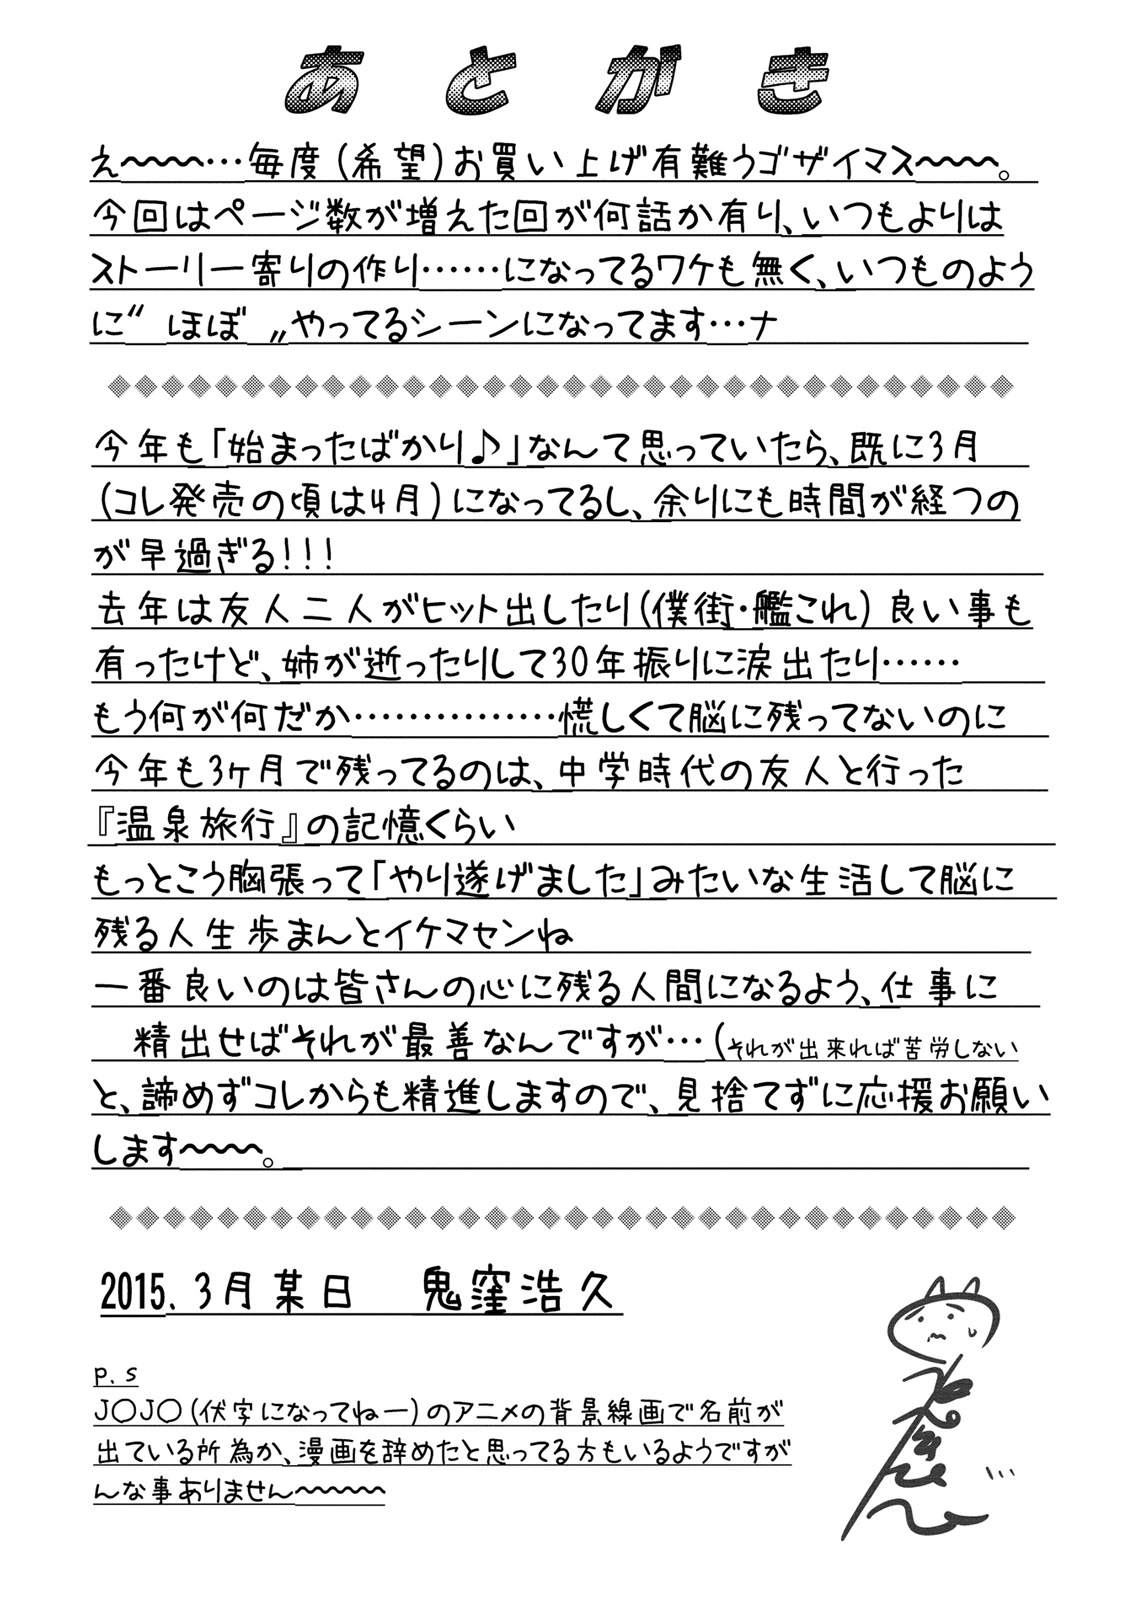 あとがき
え〜〜〜…毎度(希望)お買い上げ有難うゴザイマス〜〜〜。
今回はページ数が増えた回が何話か有り、いつもよりは
ストーリー寄りの作り……になってるワケも無く、いつものよう
に〝ほぼ〟やってるシーンになってます…ナ
今年も「始まったばかり♪」なんて思っていたら、既に3月
(コレ発売の頃は4月)になってるし、余りにも時間が経つの
が早過ぎる!!!
去年は友人二人がヒット出したり(僕街・艦これ)良い事も
有ったけど、姉が逝ったりして30年振りに涙出たり……
もう何が何だか……………慌しくて脳に残ってないのに
今年も3ヶ月で残ってるのは、中学時代の友人と行った
『温泉旅行』の記憶くらい
もっとこう胸張って「やり遂げました」みたいな生活して脳に
残る人生歩まんとイケマセンね
一番良いのは皆さんの心に残る人間になるよう、仕事に
精出せばそれが最善なんですが…(それが出来れば苦労しない
と、諦めずコレからも精進しますので、見捨てずに応援お願い
します〜〜〜。
2015.3月某日 鬼窪浩久
p.s
J〇J〇(伏字になってねー)のアニメの背景線画で名前が
出ている所為か、漫画を辞めたと思ってる方もいるようですが
んな事ありません〜〜〜〜